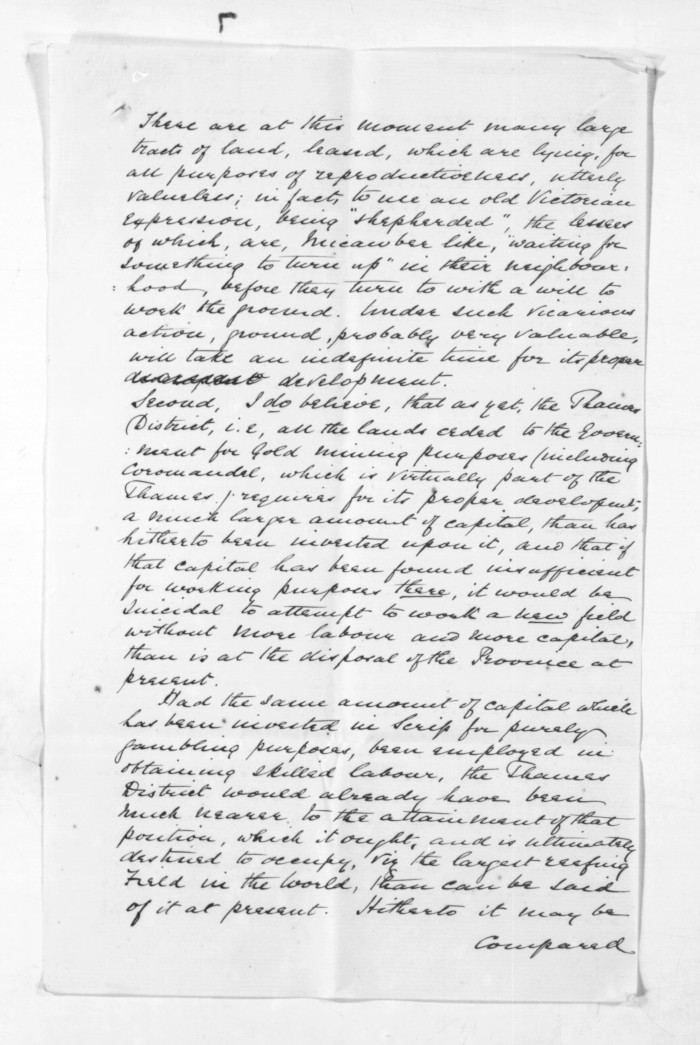 There are at this moment many large
tracts of land, leased, which are lying, for
all purposes of reproductiveness, utterly
valueless; in fact, to use an old Victorian
expression, being "shepherded", the lessees
of which, are, Micawber like, "waiting for
something to turn up" in their neighbour:
:hood, before they turn to with a will to
work the ground. Under such vicarious
action, ground, probably very valuable,
will take an indefinite time for its proper
development.
Second, I do believe, that as yet, the Thames
District, i.e, all the lands ceded to the Govern:
:ment for Gold Mining purposes (including
Coromandel, which is virtually part of the
Thames.) requires for its proper developmt,
a much larger amount of capital, than has
hitherto been invested upon it, and that if
that capital has been found insufficient
for working purposes there, it would be
suicidal to attempt to work a new field
without more labour and more capital,
than is at the disposal of the Province at
present.
Had the same amount of capital which
has been invested in Scrip for purely
gambling purposes, been employed in
obtaining skilled labour, the Thames
District would already have been
much nearer to the attainment of that
position, which it ought, and is ultimately
destined to occupy, viz the largest reefing
Field in the World, than can be said
of it at present. Hitherto it may be
Compared